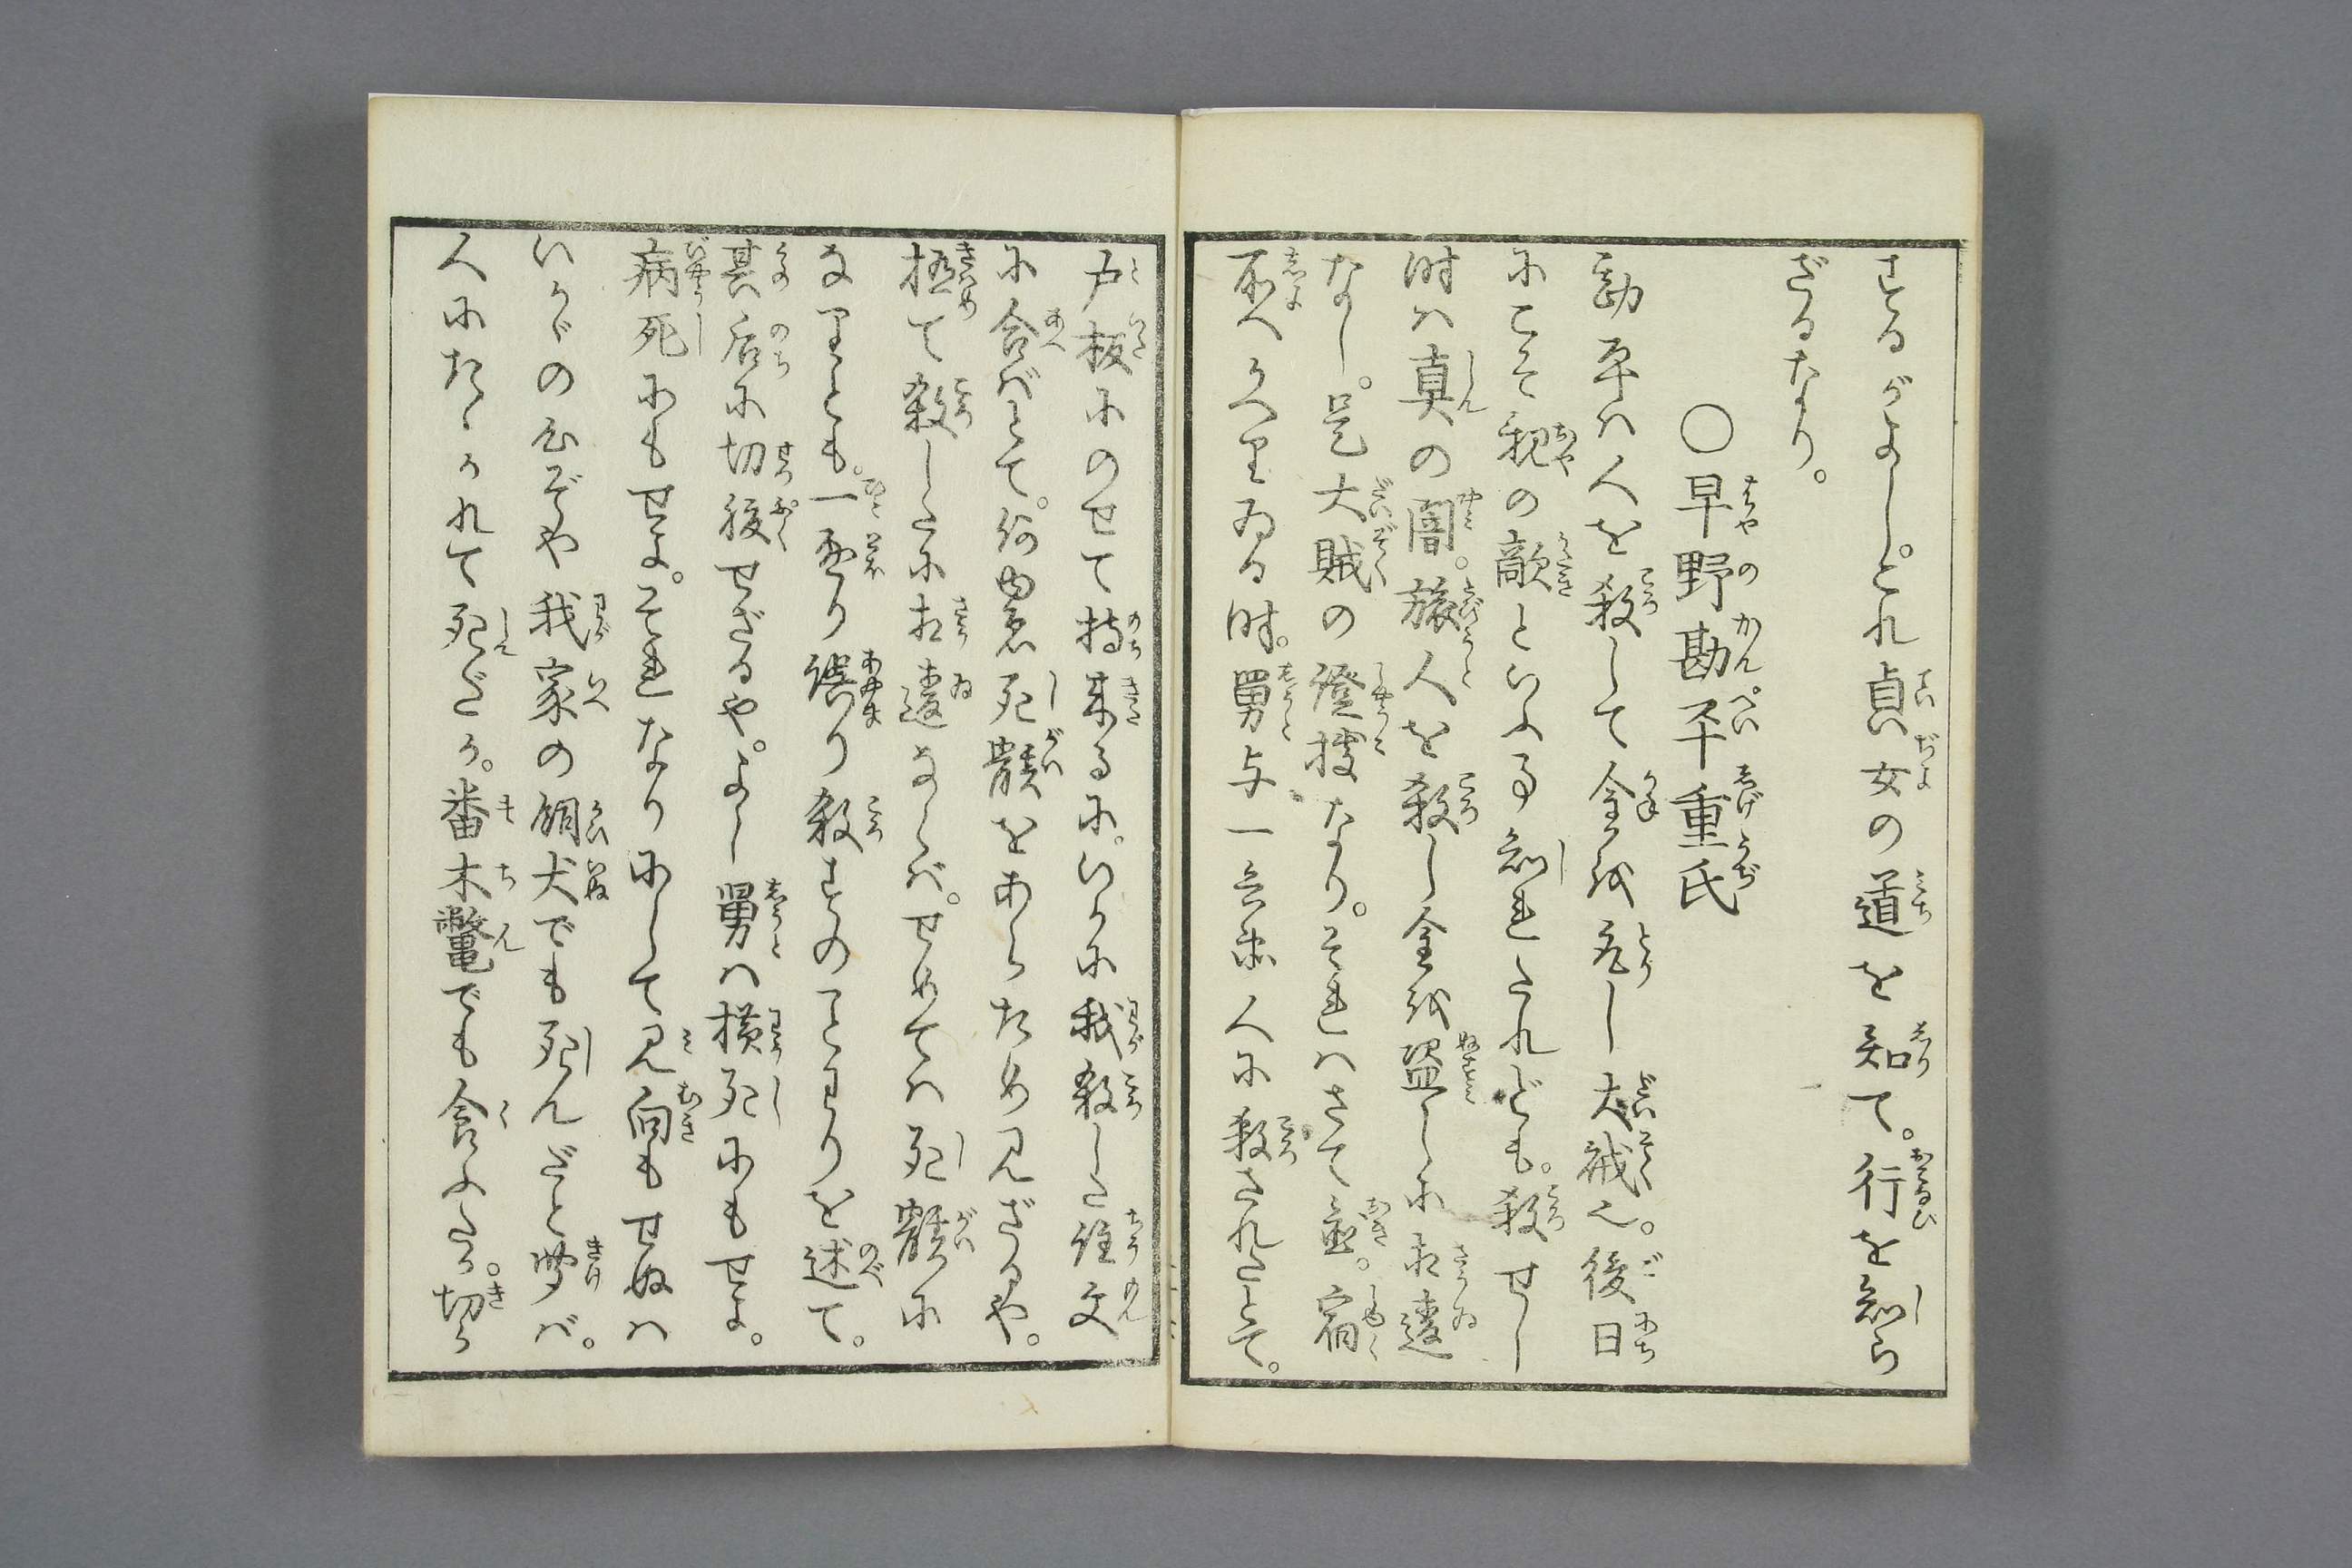 するがよし。これ貞女の道を知て。行を知ら
ざるなり。
〇早野勘平重氏
勘平ハ人を殺して金を取し大賊也。後日
にこそ親の敵といふ事知れたれども。殺せし
時ハ真の闇。旅人を殺し金を盗しに相違
なし。是大賊の證拠なり。それハさて置。宿
所へかへりゐる時。舅与一兵衛人に殺されたとて。
戸板にのせて持来るに。いかに我殺した
に合ばとて。何ゆゑ死骸をあらため見ざるや。
極て殺したに相違なくバ。せめてハ死骸に
なりとも。一通り誤り殺すのことわりを述て。
其后に切腹せざるや。よし舅ハ横死にもせよ。
病死にもせよ。それなりにして見向もせぬハ
いかゞの心ぞや我家の飼犬でも死んだと聞バ。
人にたゝかれて死だか。番木鼈でも食ふたか。切ら